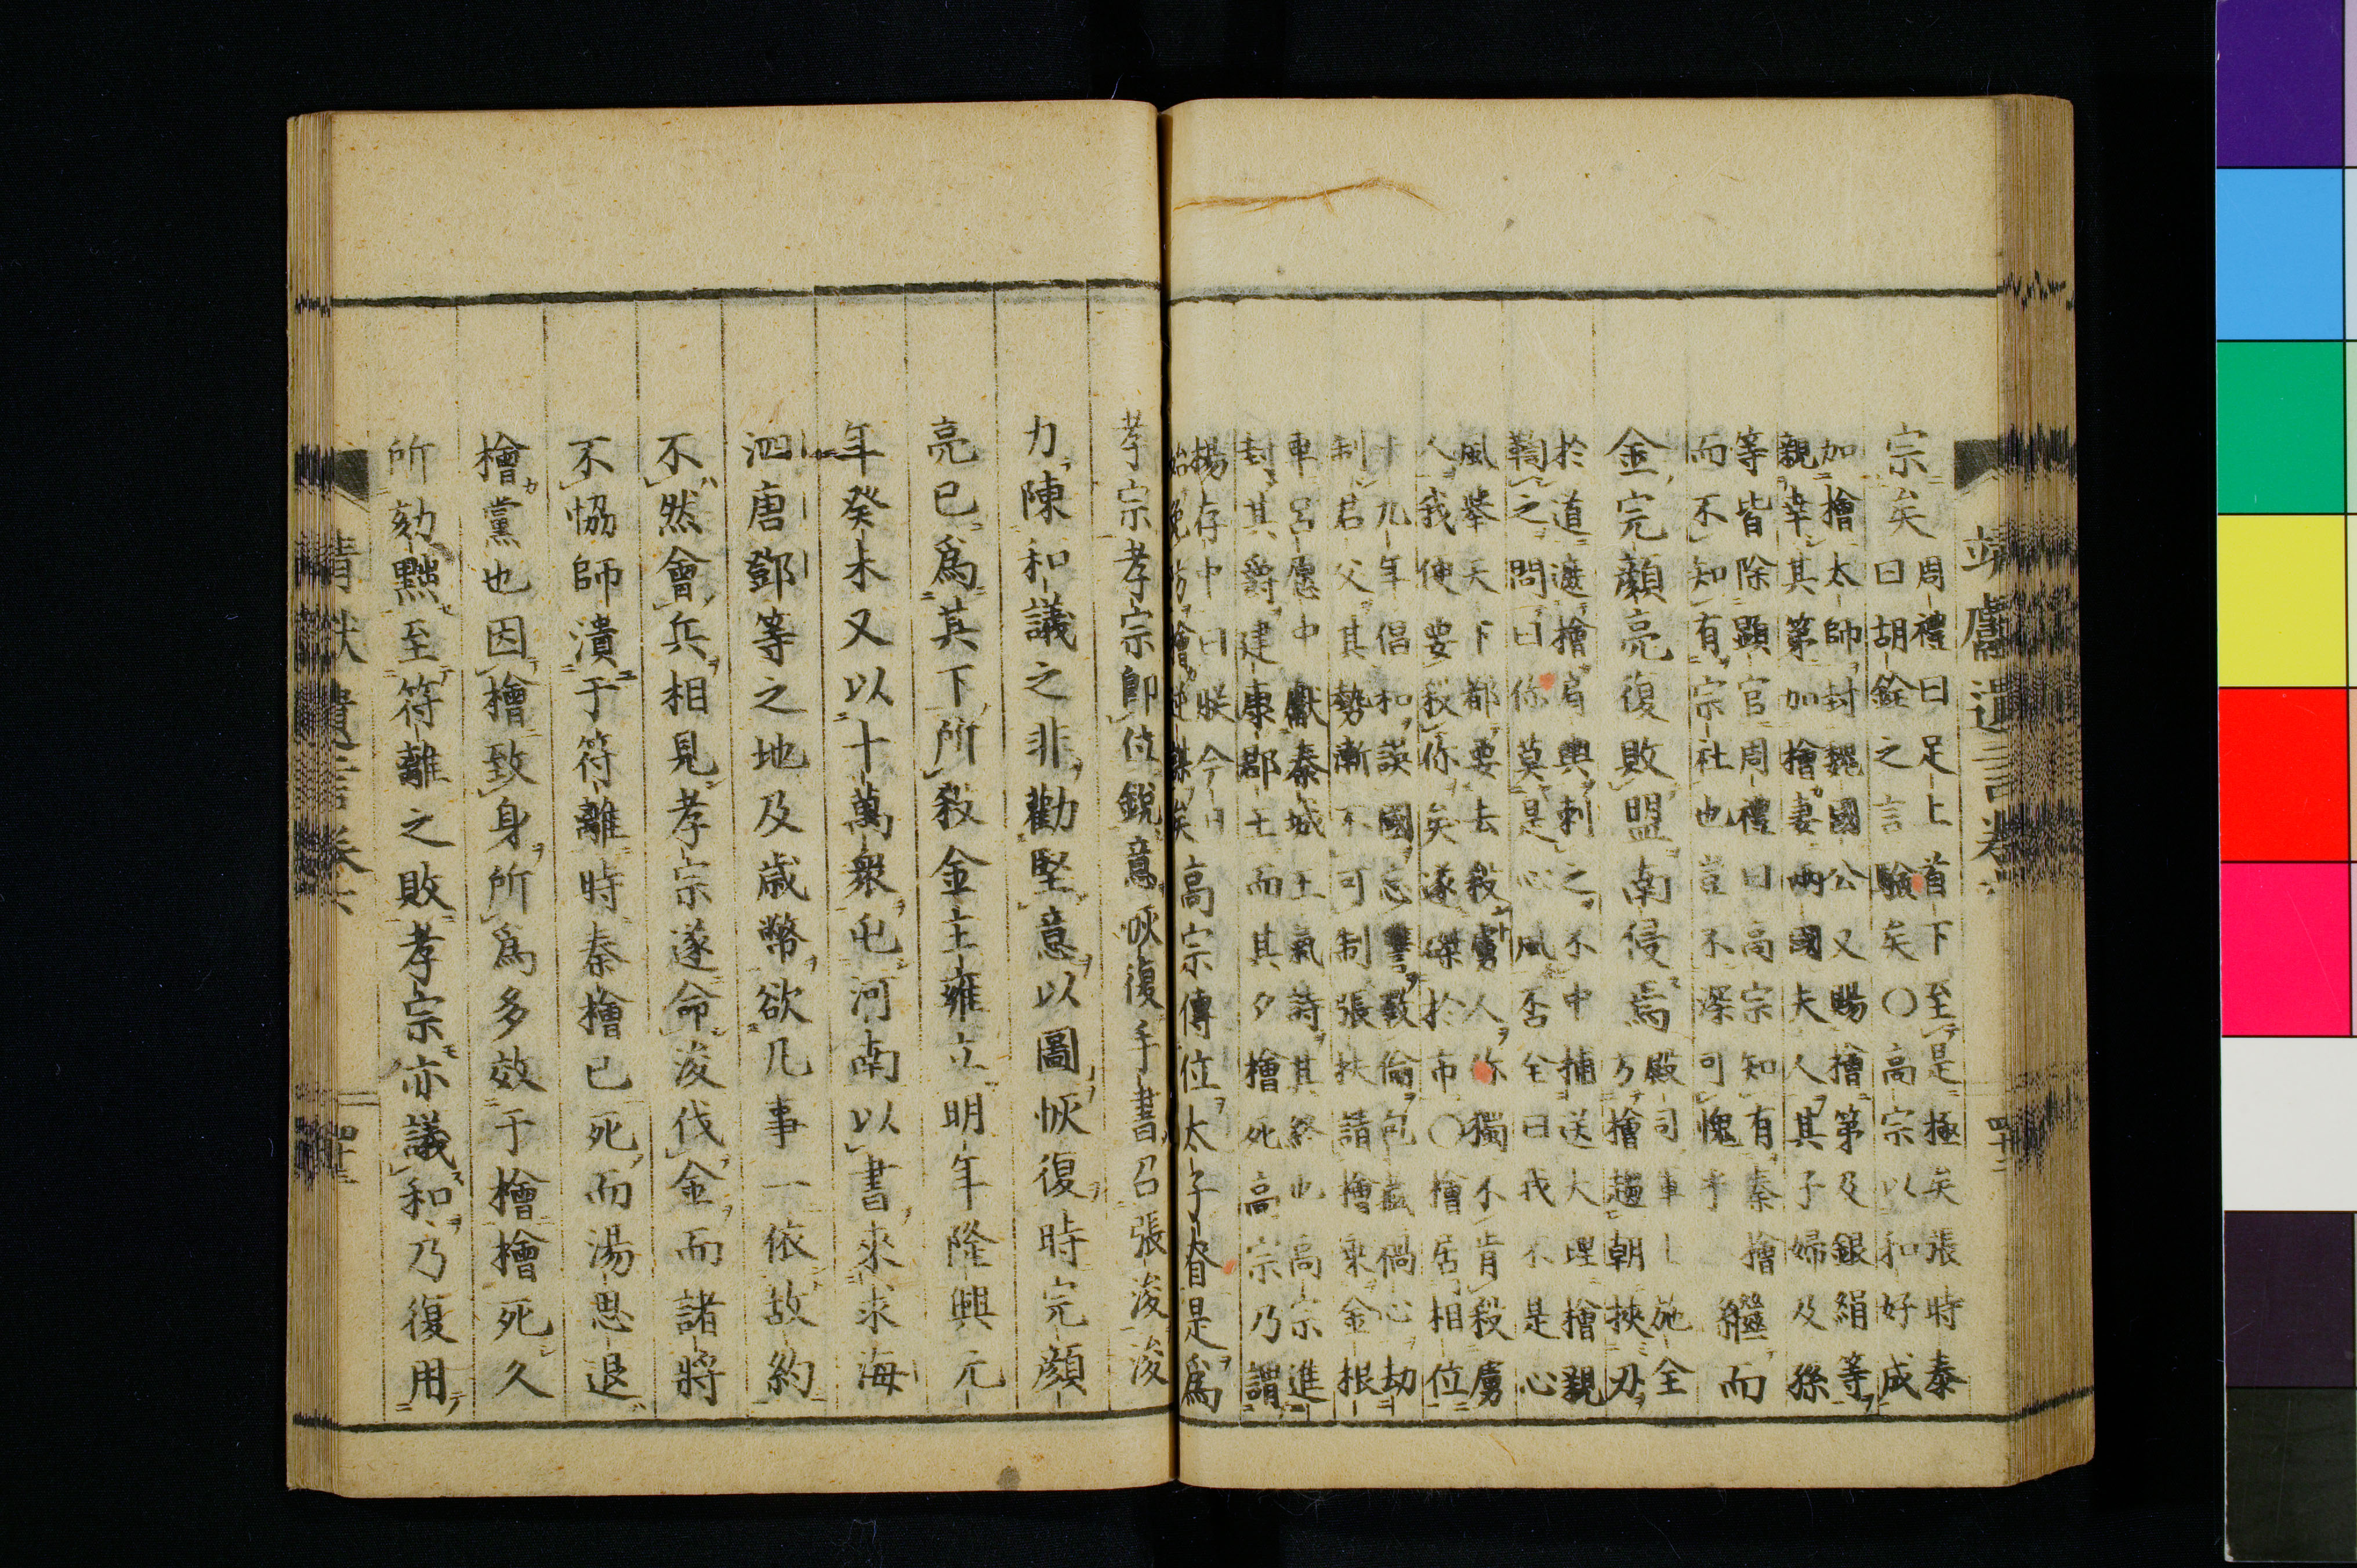 宗矣周禮曰足上首下至是極矣張時泰
曰胡銓之言驗矣〇高宗以和好成
加檜太師封魏國公又賜檜第及銀絹等
親幸其第加檜妻兩國夫人其子婦及孫
等皆除顯官周禮曰高宗知有秦檜
而不知有宗社也豈不深可愧乎
繼而
金完顏亮復敗盟南侵焉殿司軍士施全
乃檜趨朝挾刃
於道遮檜肩輿刺之不中捕送大理檜親
鞫之問曰你莫是心風否全曰我不是心
風舉天下都要去殺虜人你獨不肯殺虜
人我便要殺你矣遂磔於市〇檜居相位
十九年倡和誤國忘讐斁倫包藏禍心劫
制君父其勢漸不可制張扶請檜乘金根
車呂愿中獻秦城王氣詩其終也高宗進
封其爵建康郡王而其夕檜死高宗乃謂
楊存中曰朕今日
始免防檜逆謀矣
高宗傳位太子眘是爲
孝宗孝宗卽位銳意恢復手書召張浚浚
力陳和議之非勸堅意以圖恢復時完顏
亮已爲其下所殺金主雍立明年隆興元
年癸未又以十萬衆屯河南以書來求海
泗唐鄧等之地及歲幣欲凡事一依故約
不然會兵相見孝宗遂命浚伐金而諸將
不恊師潰于符離時秦檜已死而湯思退
檜黨也因檜致身所爲多效于檜檜死久
所劾黜至符離之敗孝宗亦議和乃復用
靖獻遺言卷六